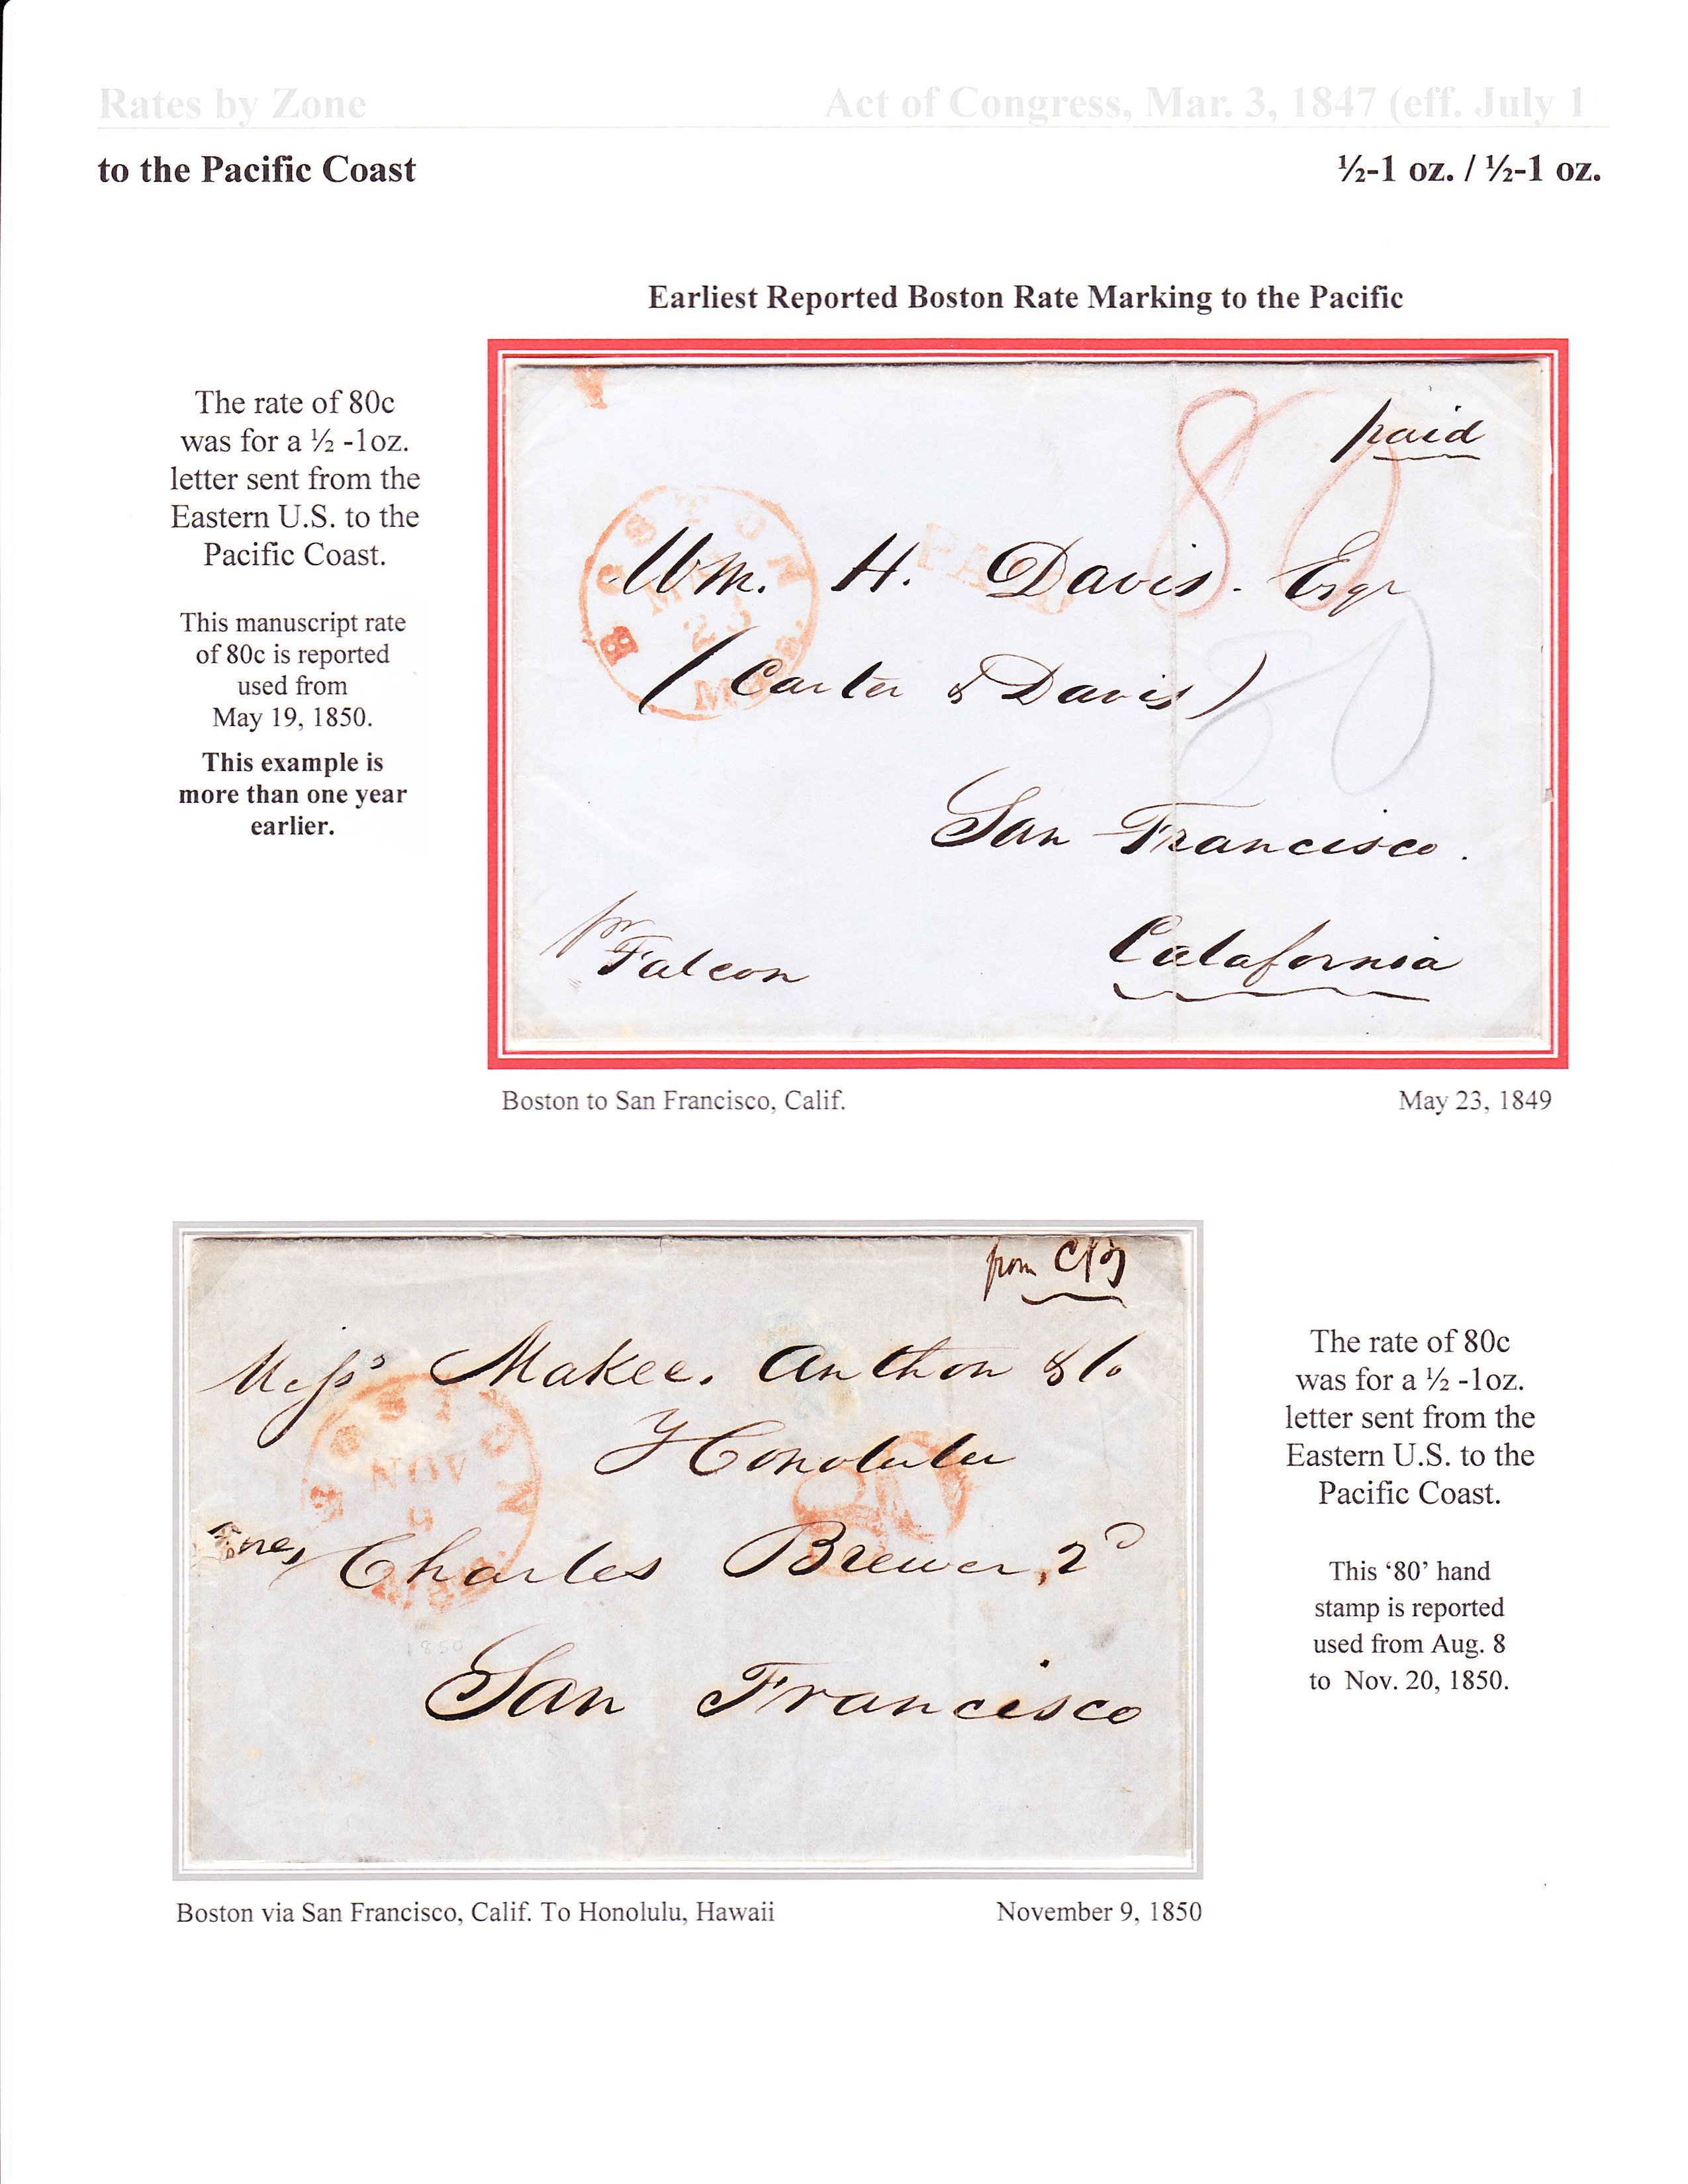 Rates by Zone
Act of Congress, Mar. 3, 1847 (eff. July 1
to the Pacific Coast
½-1 oz. / ½-1 oz.
Earliest Reported Boston Rate Marking to the Pacific
The rate of 80c
was for a ½ -1oz.
letter sent from the
Eastern U.S. to the
Pacific Coast.
This manuscript rate
of 80c is reported
used from
May 19, 1850.
This example is
more than one year
earlier.
paid
80
BOSTON
23
MASS.
PAID
Wm. H. Davis. Esqr
(Carter & Davis)
80
San Francisco.
Calafornia
pr
Falcon
Boston to San Francisco, Calif.
May 23, 1849
from
Messrs Makee, Anthon & Co
Honolulu
BOSTON
NOV
9
80
Charles Brewer, 2d
1850
San Francisco
The rate of 80c
was for a ½ -1oz.
letter sent from the
Eastern U.S. to the
Pacific Coast.
This ‘80’ hand
stamp is reported
used from Aug. 8
to Nov. 20, 1850.
Boston via San Francisco, Calif. To Honolulu, Hawaii
November 9, 1850